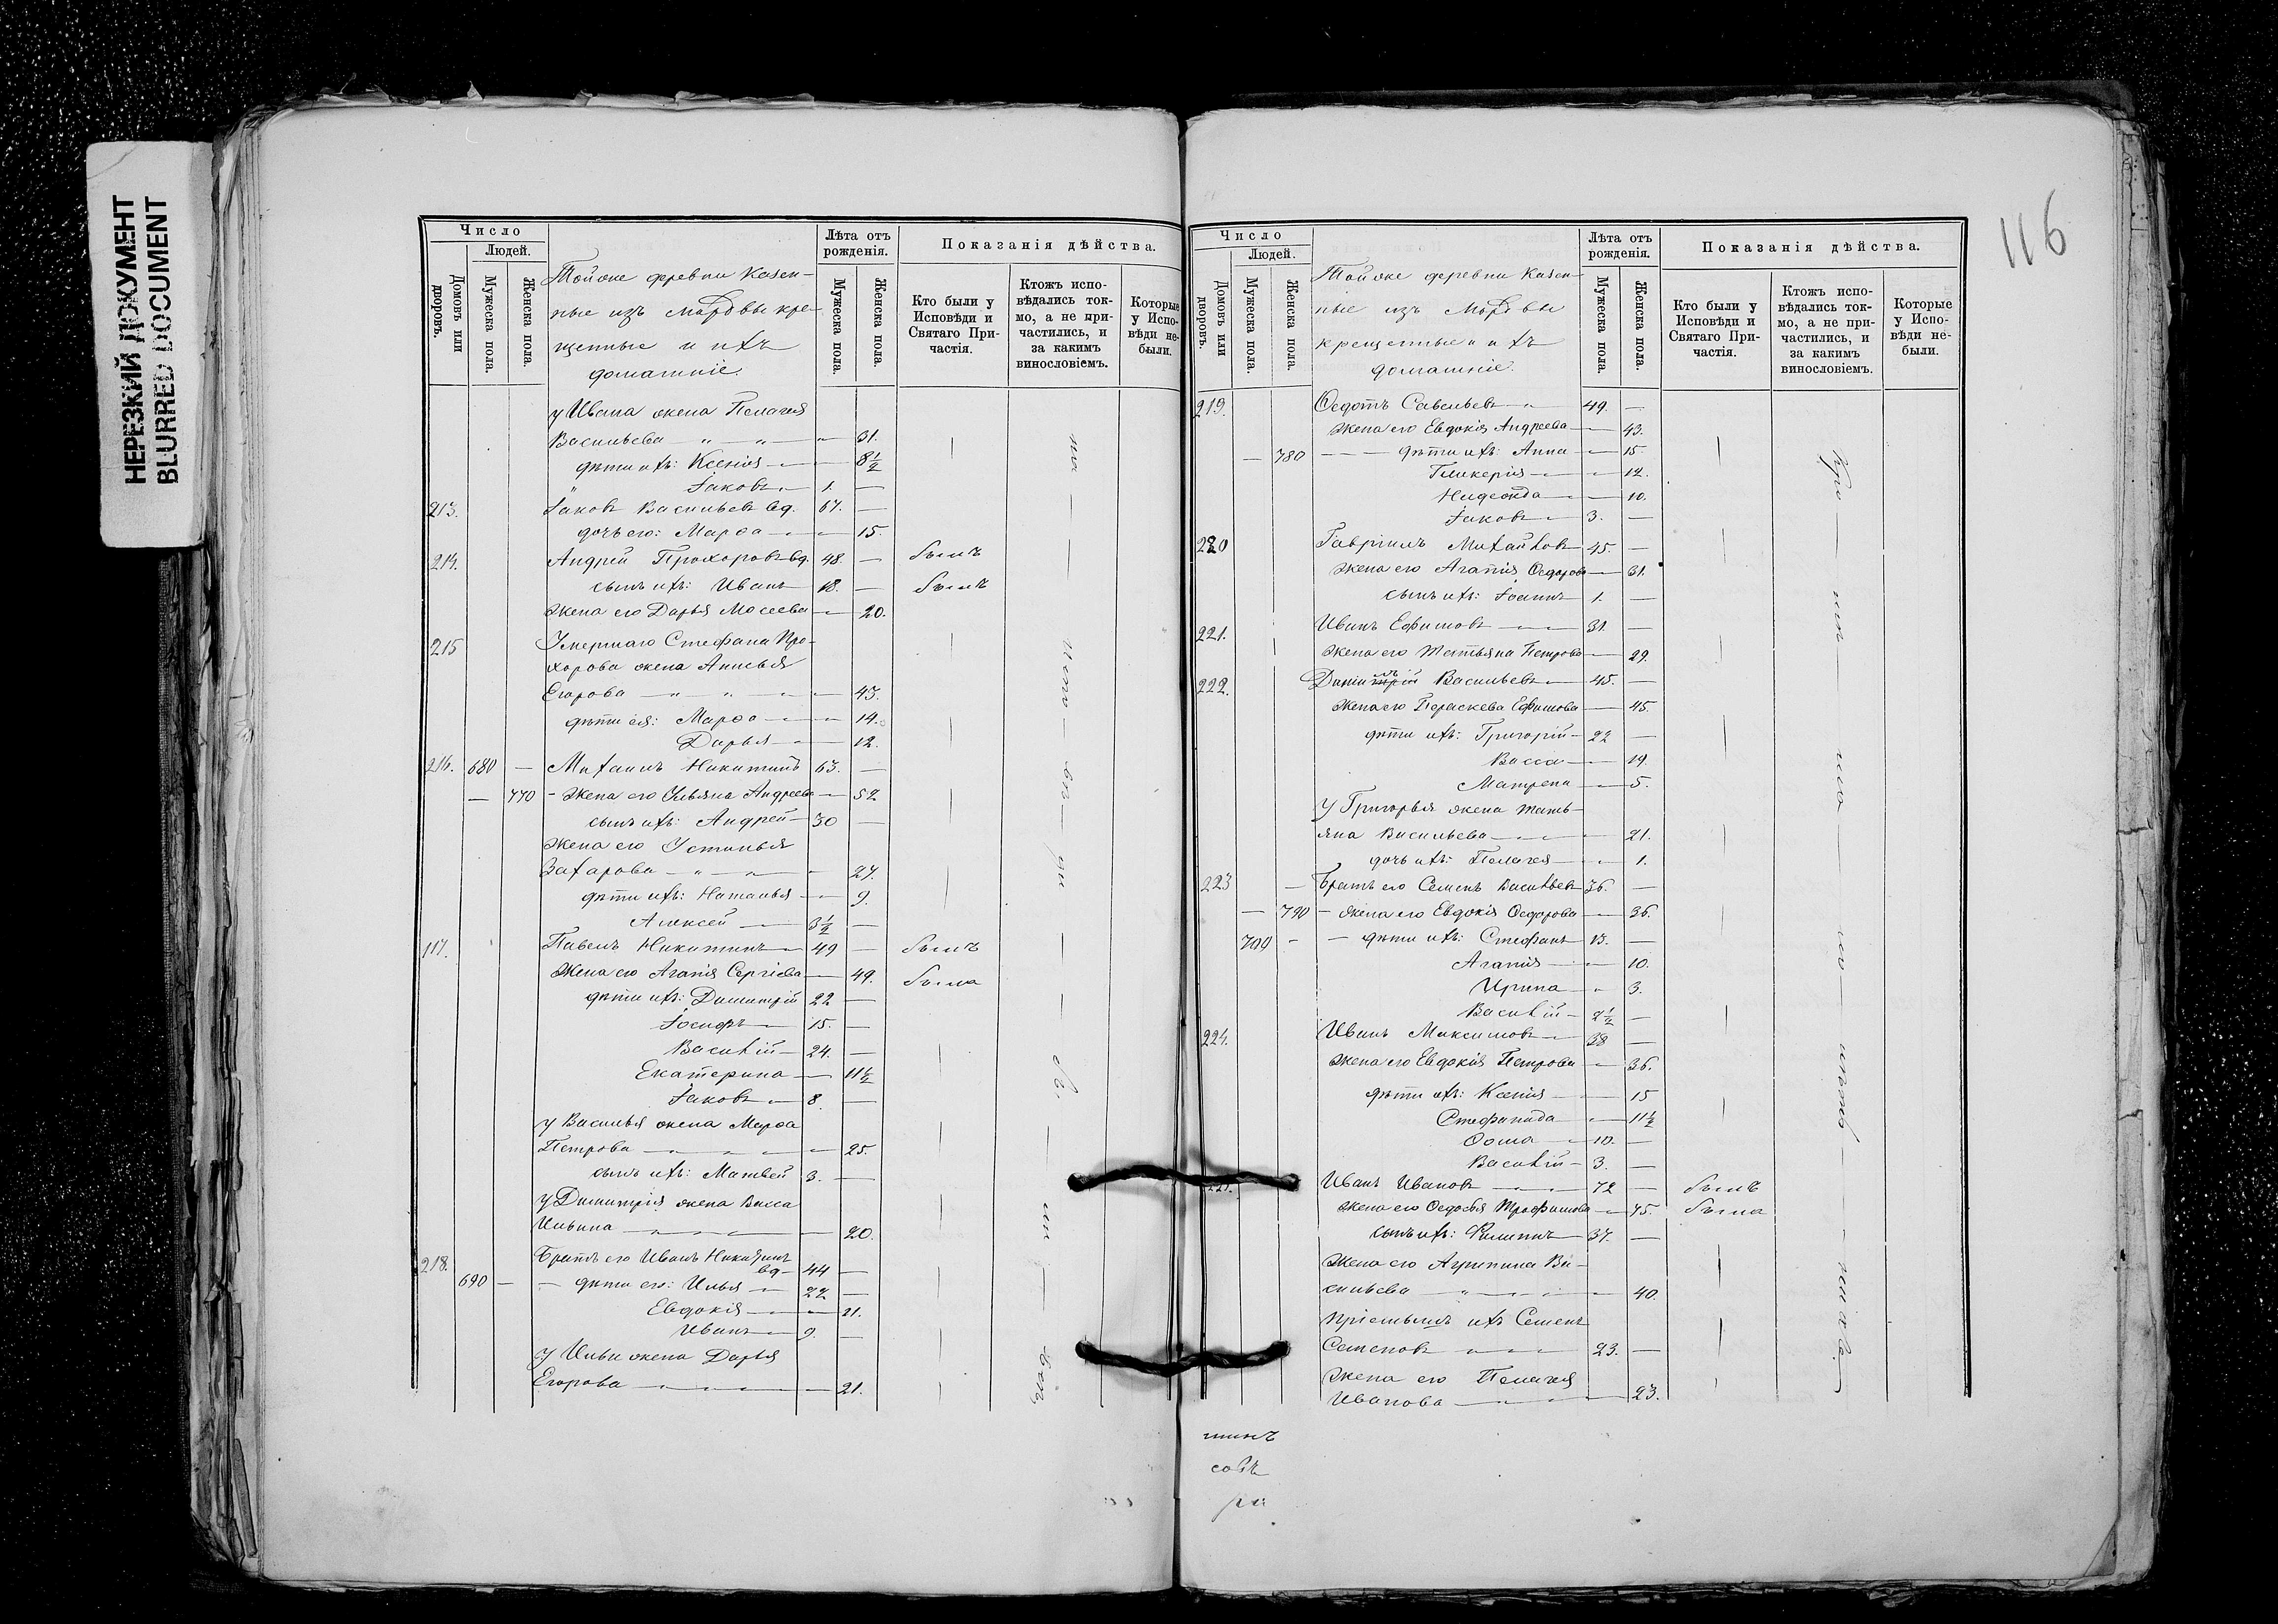 НЕРЕЗКИЙ ДОКУМЕНТ
BLURRED DOCUMENT
Число
Людей.
Домовъ или дворовъ.
Мужеска пола.
Женска пола.
Лѣта отъ рожденія.
Мужеска пола.
Женска пола.
Показанія дѣйства.
Кто были у Исповѣди и Святаго Причастія.
Ктожъ исповѣдались токмо, а не причастились, и за какимъ винословіемъ.
Которые у Исповѣди небыли.
Тойже деревни казен-
ные изъ мордвы кре-
щенные и ихъ
домашніе.
у Ивана жена Пелагея
Васильева 31.
дѣти ихъ: Ксенія 8½
Іаковъ 1. —
213. Іаковъ Васильевъ вд. 67. —
дочь его: Марѳа 15.
214. Андрей Прохоровъ вд. 48. — былъ
сынъ ихъ: Иванъ 18. — былъ
жена его Дарья Мосеева 20.
215 Умершаго Стефана Про-
хорова жена Анисья
Егорова 43.
дѣти ея: Марѳа 14.
Дарья 12.
216. 680 — Михаилъ Никитинъ 63. —
— 770 — жена его Ульяна Андреева 52
сынъ ихъ: Андрей 30 —
жена его Устинья
Захарова 27.
дѣти ихъ: Наталья 9.
Алексей 3½ —
117. Павелъ Никитинъ 49 — былъ
жена его Агапія Сергіева 49. была
дѣти ихъ: Димитрій 22 —
Іосифъ 15. —
Василій 24. —
Екатерина 11½
Іаковъ 8. —
у Василья жена Марѳа
Петрова 25.
сынъ ихъ: Матвей 3. —
у Димитрія жена Васса
Ильина 20.
218. Братъ его Иванъ Никитинъ
вд 44 —
690 — дѣти его: Илья 22 —
Евдокія 21.
Иванъ 9. —
у Ильи жена Дарья
Егорова 21.
116
Число
Людей.
Домовъ или дворовъ.
Мужеска пола.
Женска пола.
Лѣта отъ рожденія.
Мужеска пола.
Женска пола.
Показанія дѣйства.
Кто были у Исповѣди и Святаго Причастія.
Ктожъ исповѣдались токмо, а не причастились, и за какимъ винословіемъ.
Которые у Исповѣди небыли.
Тойже деревни казен-
ные изъ мордвы
крещенные и ихъ
домашніе.
219. Ѳедотъ Савельевъ 49. —
жена его Евдокія Андреева 43.
— 780 — дѣти ихъ: Анна 15.
Гликерія 12.
10.
Іаковъ 3. —
220 Гавріилъ Михайловъ 45. —
жена его Агапія Ѳедорова 31.
сынъ ихъ: Іоаннъ 1. —
221. Иванъ Ефимовъ 31. —
жена его Татьяна Петрова 29.
222. Даніилъ Васильевъ 45. —
жена его Параскева Ефимова 45.
дѣти ихъ: Григорій 22 —
Васса 19.
Матрена 5.
у Григорья жена Тать-
яна Васильева 21.
дочь ихъ: Пелагея 1.
223 — Братъ его Семенъ Васильевъ 36. —
— 790 — жена его Евдокія Ѳедорова 36.
700 — — дѣти ихъ: Стефанъ 13. —
Агапія 10.
Ирина 3.
Василій 2½ —
224. Иванъ Максимовъ 38 —
жена его Евдокія Петрова 36.
дѣти ихъ: Ксенія 15
Стефанида 11½
Ѳома 10. —
Василій 3. —
Иванъ Ивановъ 72 — былъ
жена его Ѳедосья Трофимова 75. была
сынъ ихъ: Филиппъ 37. —
жена его Агрипина Ва-
сильева 40.
пріемышъ ихъ Семенъ
Семеновъ 23. —
жена его Пелагея
Иванова 23.